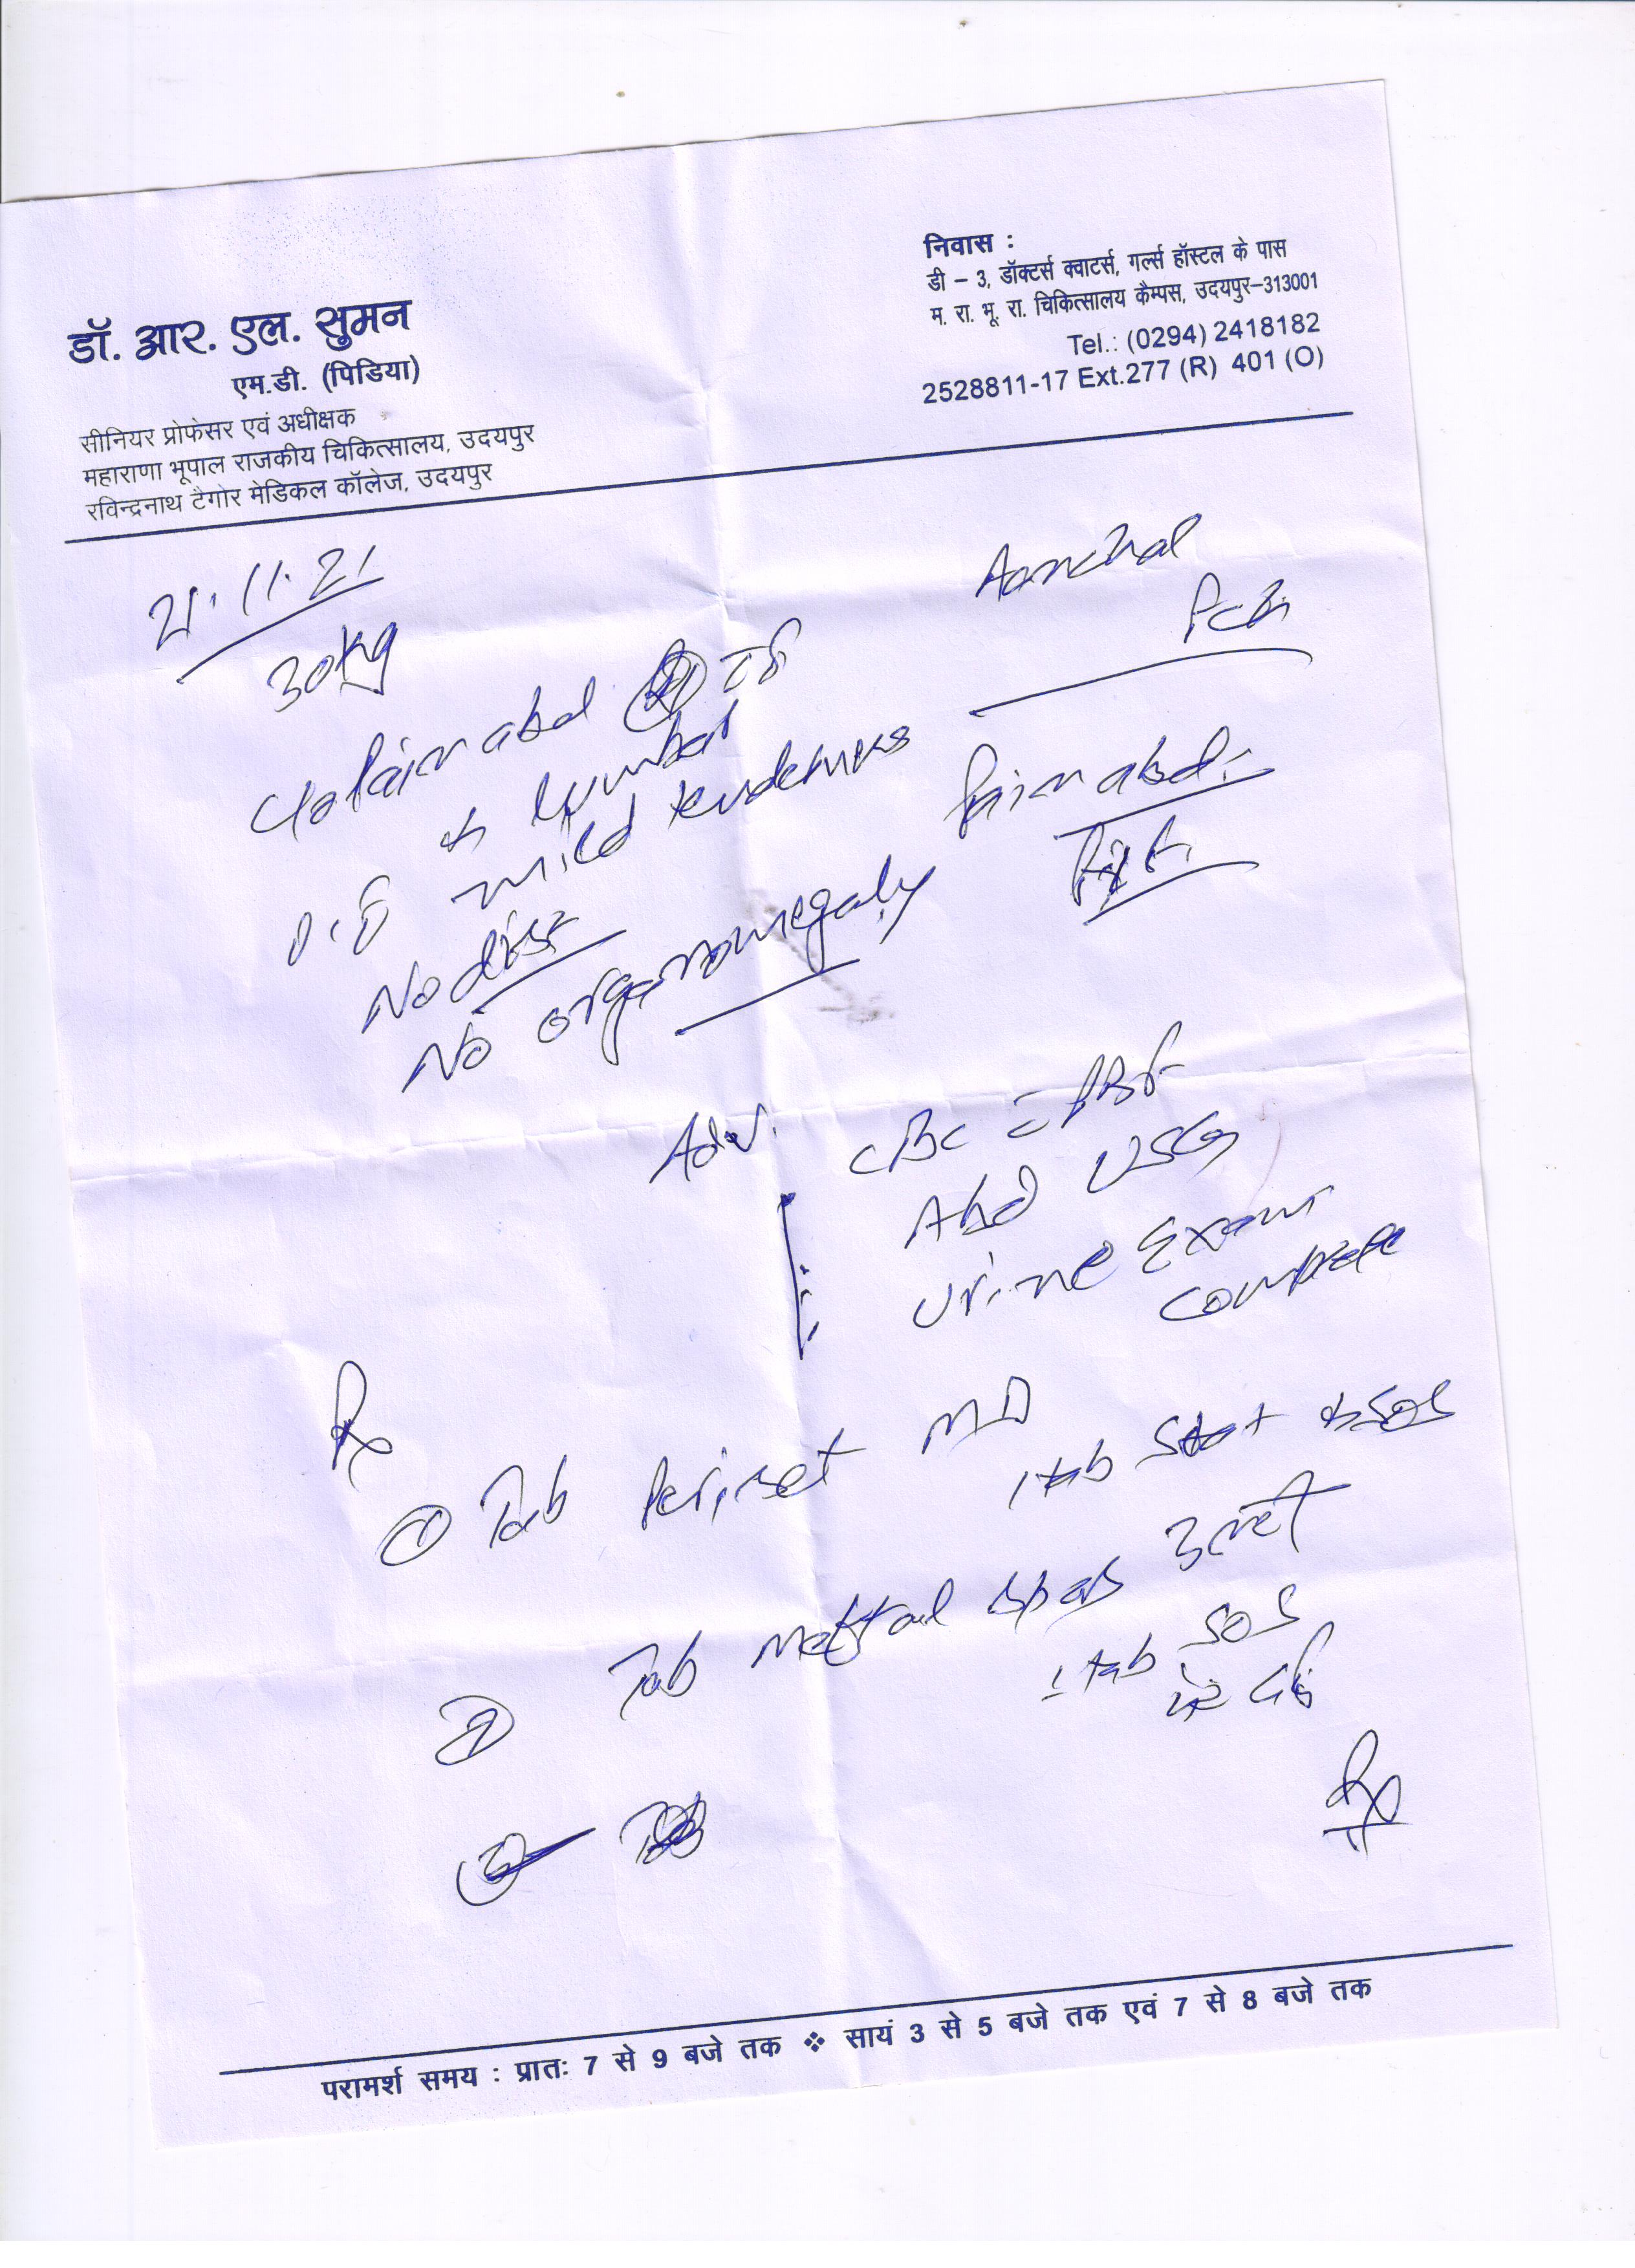 डॉ. आर. एल. सुमन
एम.डी. (पिडिया)
सीनियर प्रोफेसर एवं अधीक्षक
महाराणा भूपाल राजकीय चिकित्सालय, उदयपुर
रविन्द्रनाथ टैगोर मेडिकल कॉलेज, उदयपुर
निवास :
डी – 3, डॉक्टर्स क्वाटर्स, गर्ल्स हॉस्टल के पास
म. रा. भू. रा. चिकित्सालय कैम्पस, उदयपुर–313001
Tel.: (0294) 2418182
2528811-17 Ext.277 (R) 401 (O)
Aanchal
11.21
30kg
C/o Pain abd
lumbar
mild tenderness
No dist
No organomegaly
Pain abd.
Adv. CBC PBF
Abd USG
Urine Exam
complete
Rx
① Tab Perinet MD
1 tab Stat SOS
उल्टी
② Tab meftal spas
1 tab SOS
पेट दर्द
परामर्श समय : प्रातः 7 से 9 बजे तक ❖ सायं 3 से 5 बजे तक एवं 7 से 8 बजे तक